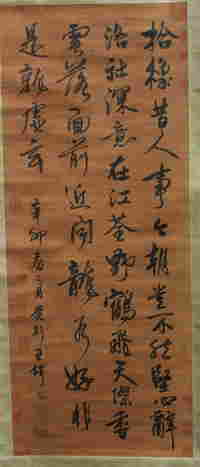 拾穗昔人事今朝豈不然堅心辭
洛社深意在江荃野鶴飛天際香
雲落面前近聞龍好非
是虛玄 辛卯春三月 王鐸